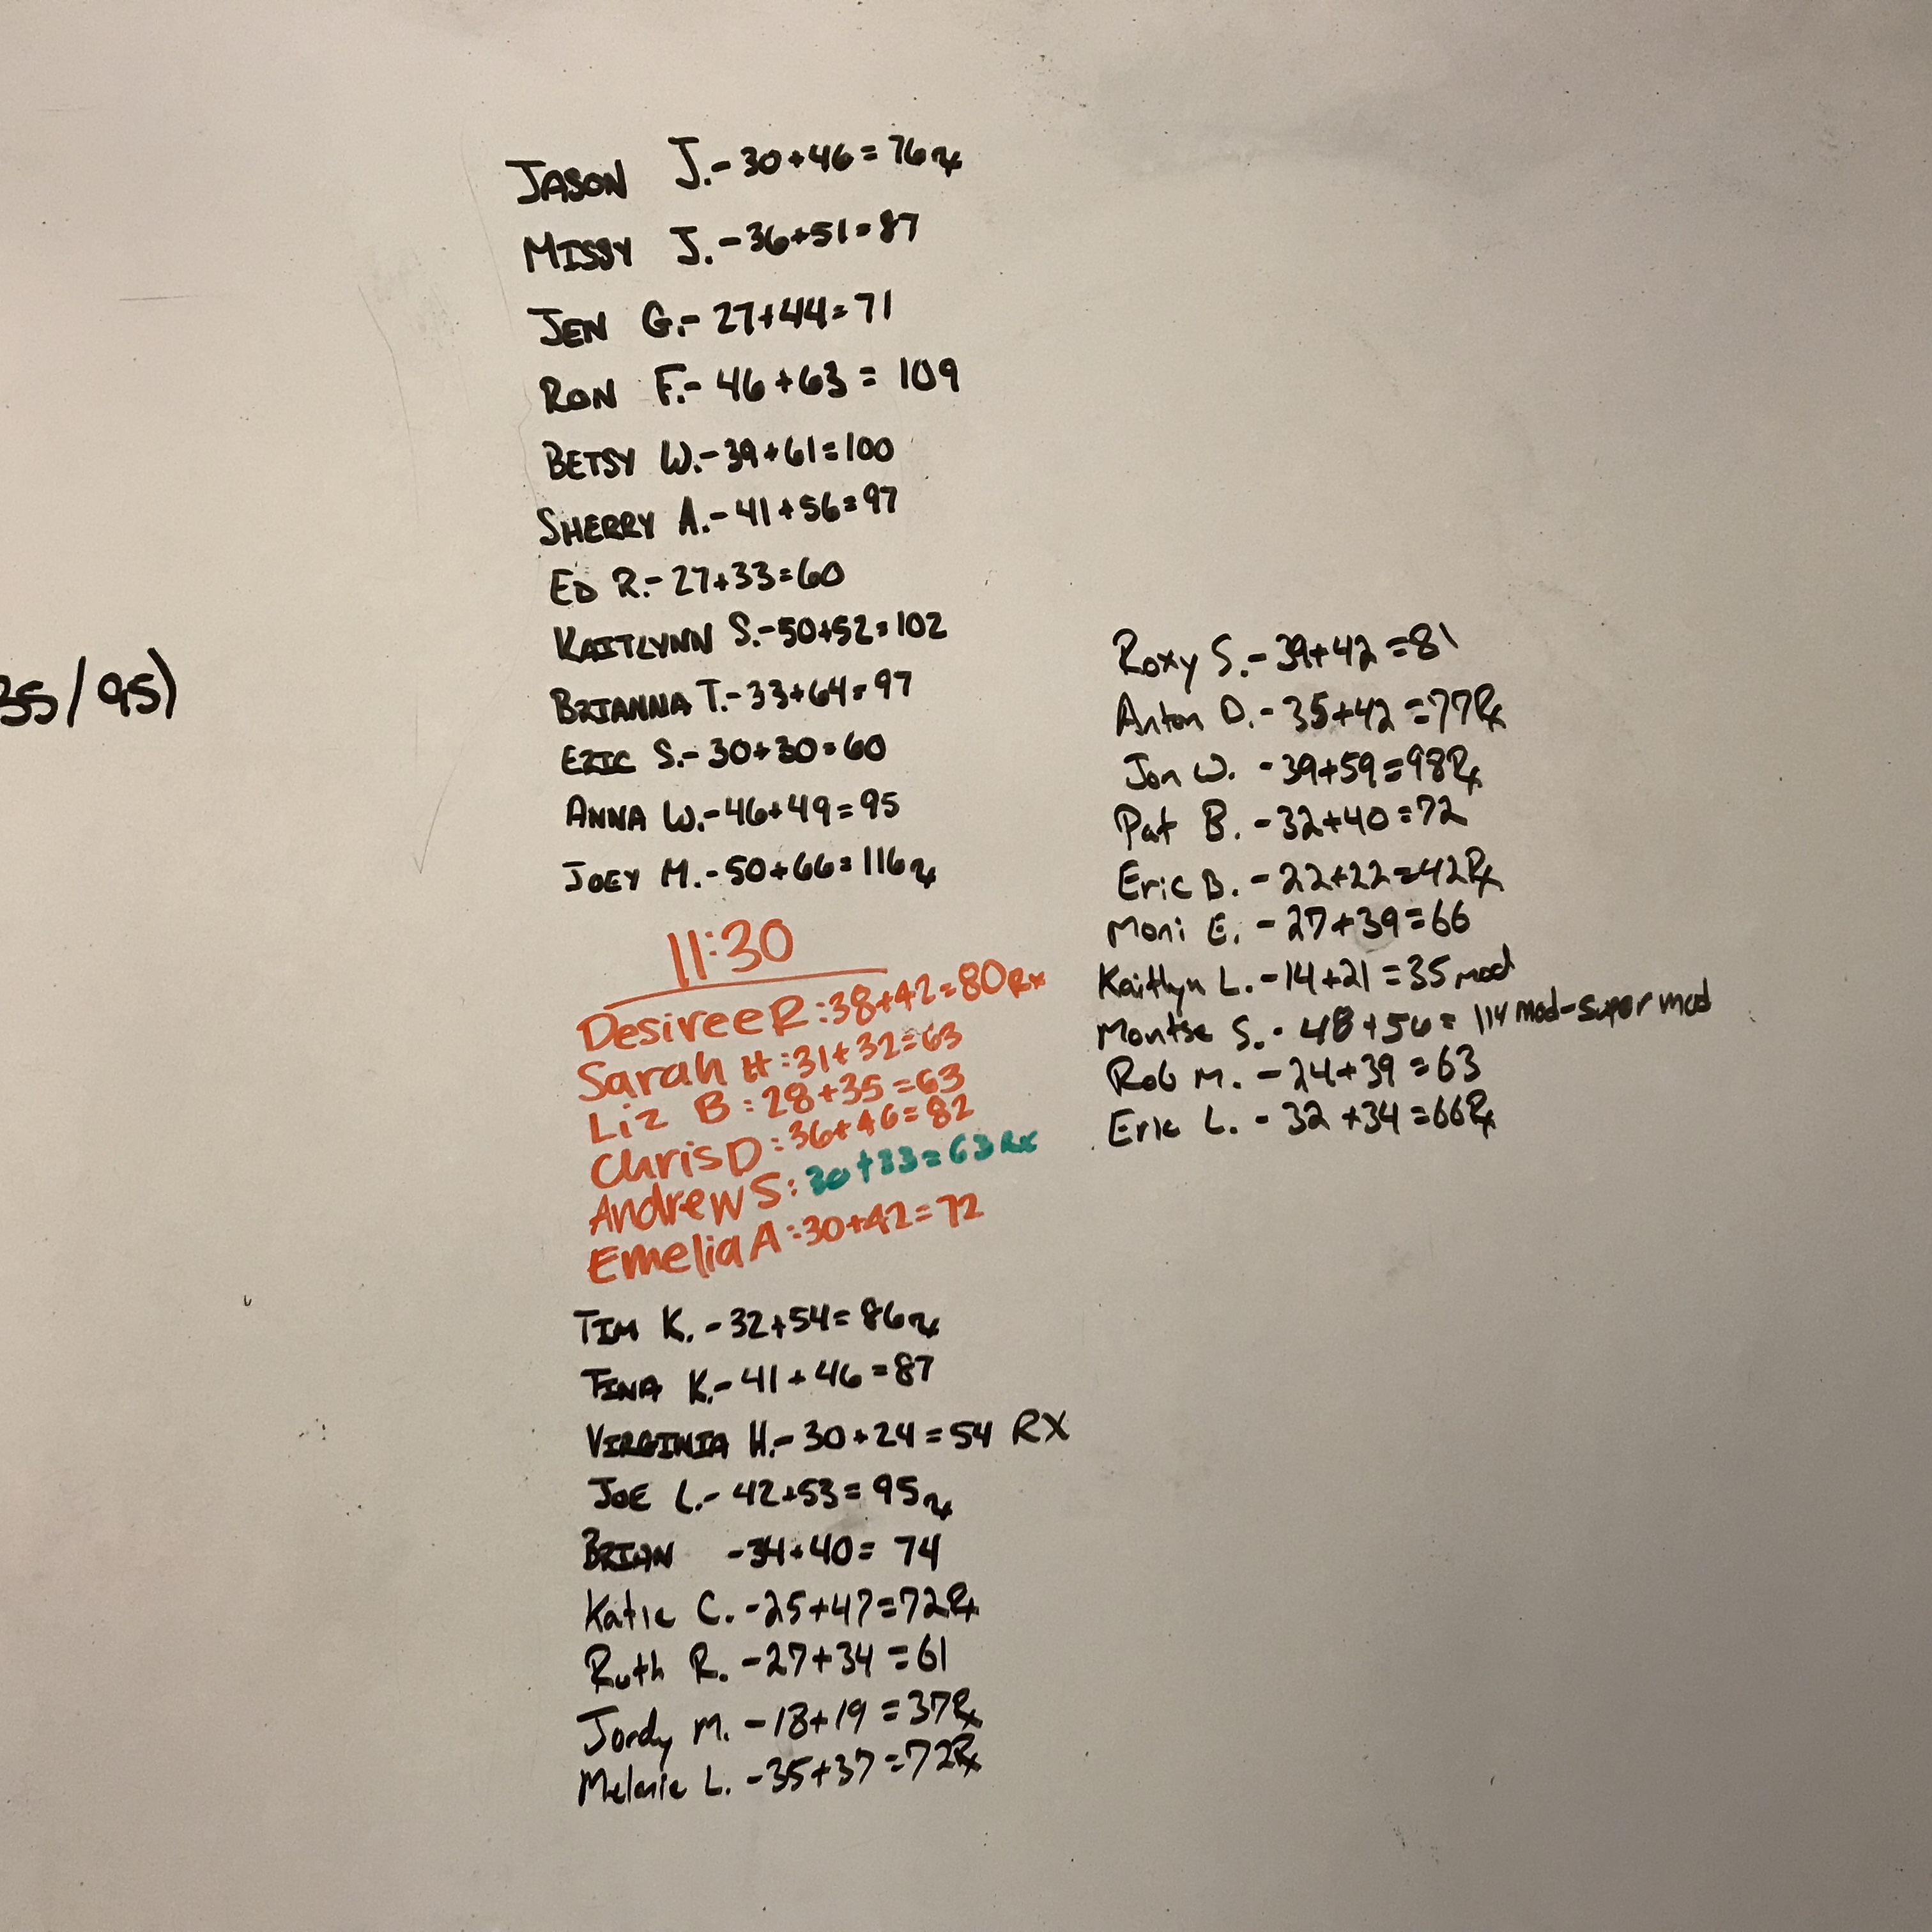 35/95)
JASON J.-30+46=76rx
MISSY J.-36+51=87
JEN G.-27+44=71
RON F.-46+63=109
BETSY W.-39+61=100
SHERRY A.-41+56=97
ED R.-27+33=60
KAITLYNN S.-50+52=102
BRIANNA T.-33+64=97
ERIC S.-30+30=60
ANNA W.-46+49=95
JOEY M.-50+66=116rx
11:30
Desiree R:38+42=80Rx
Sarah H:31+32=63
Liz B:28+35=63
Chris D:36+46=82
Andrew S:30+33=63Rx
Emelia A:30+42=72
TIM K.-32+54=86rx
TINA K.-41+46=87
VIRGINIA H.-30+24=54 RX
JOE L.-42+53=95rx
BRIAN -34+40=74
Katie C.-25+47=72Rx
Ruth R.-27+34=61
Jordy M.-18+19=37Rx
Melanie L.-35+37=72Rx
Roxy S.-39+42=81
Anton D.-35+42=77Rx
Jon W.-39+59=98Rx
Pat B.-32+40=72
Eric B.-22+22=42Rx
Moni E.-27+39=66
Kaitlyn L.-14+21=35 mod
Montse S.-48+56=114 mod-super mod
Rob M.-24+39=63
Eric L.-32+34=66Rx